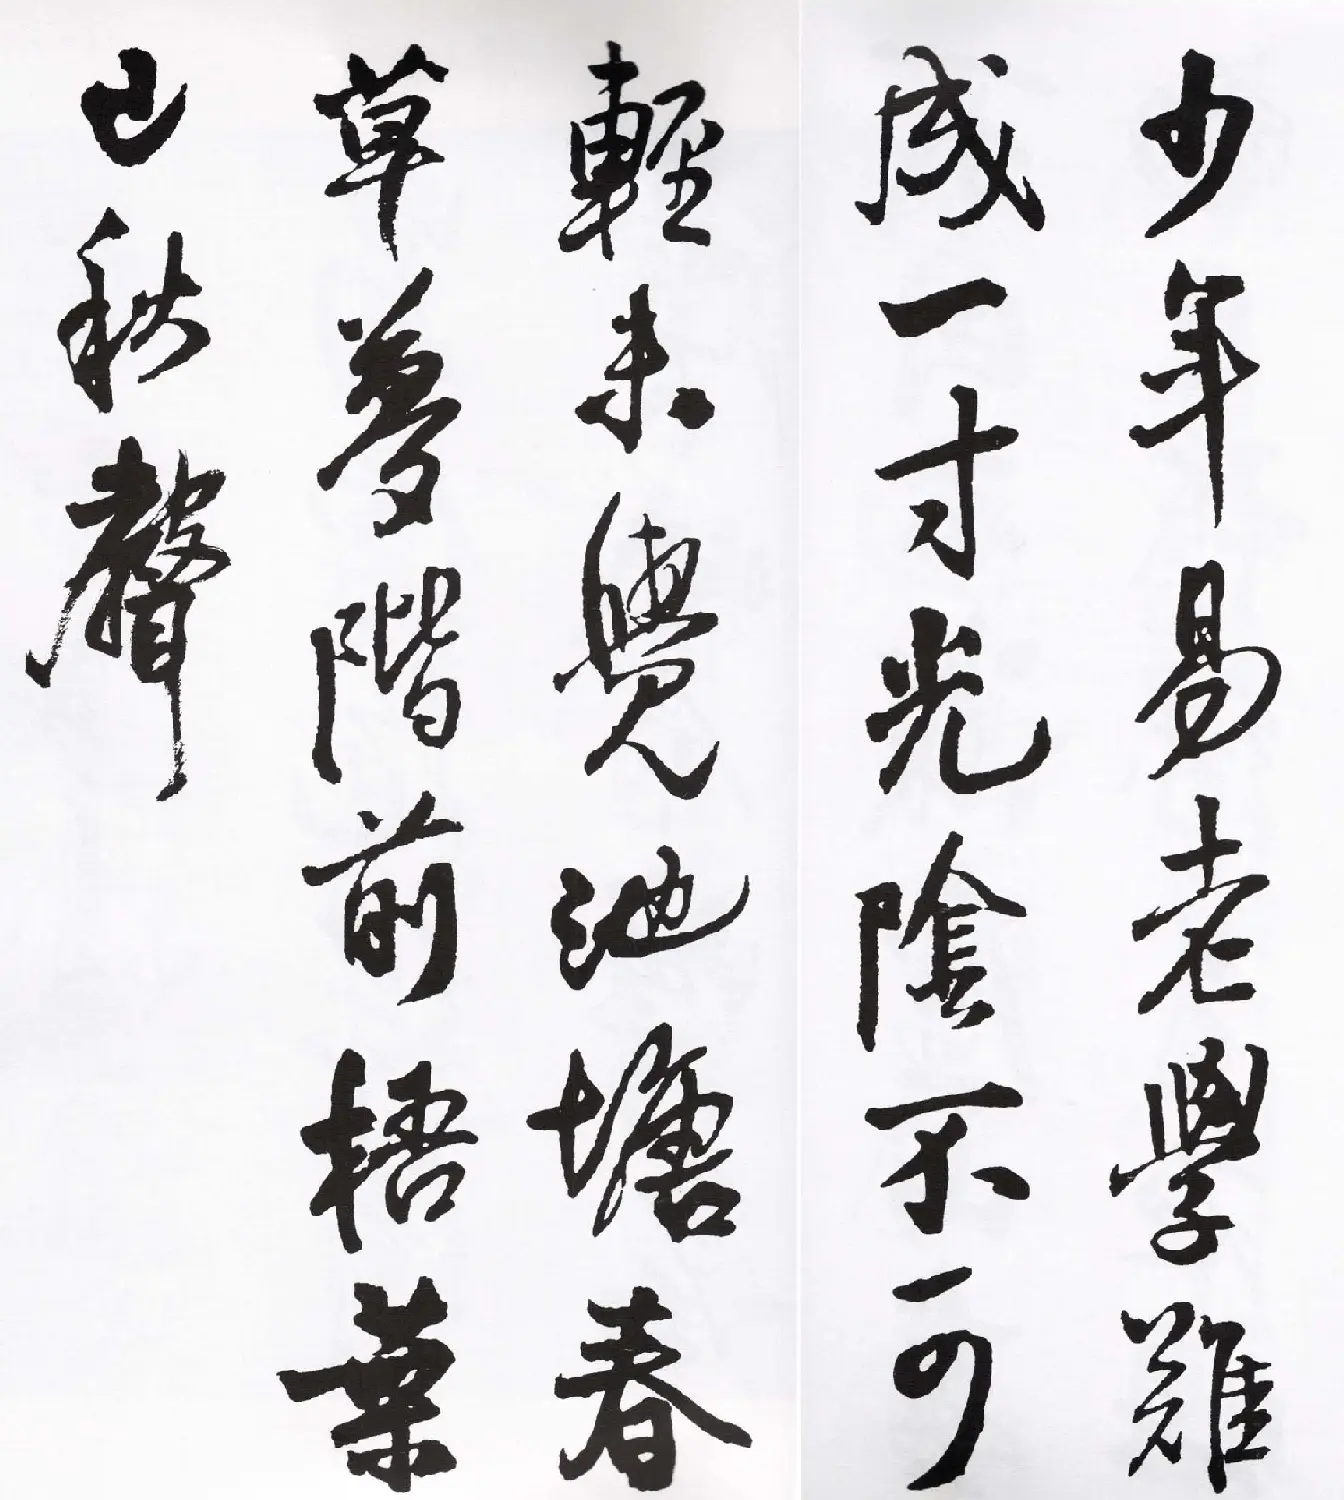 少年易老學難
成一寸光陰不可
輕未覺池塘春
草夢階前梧葉
已秋聲